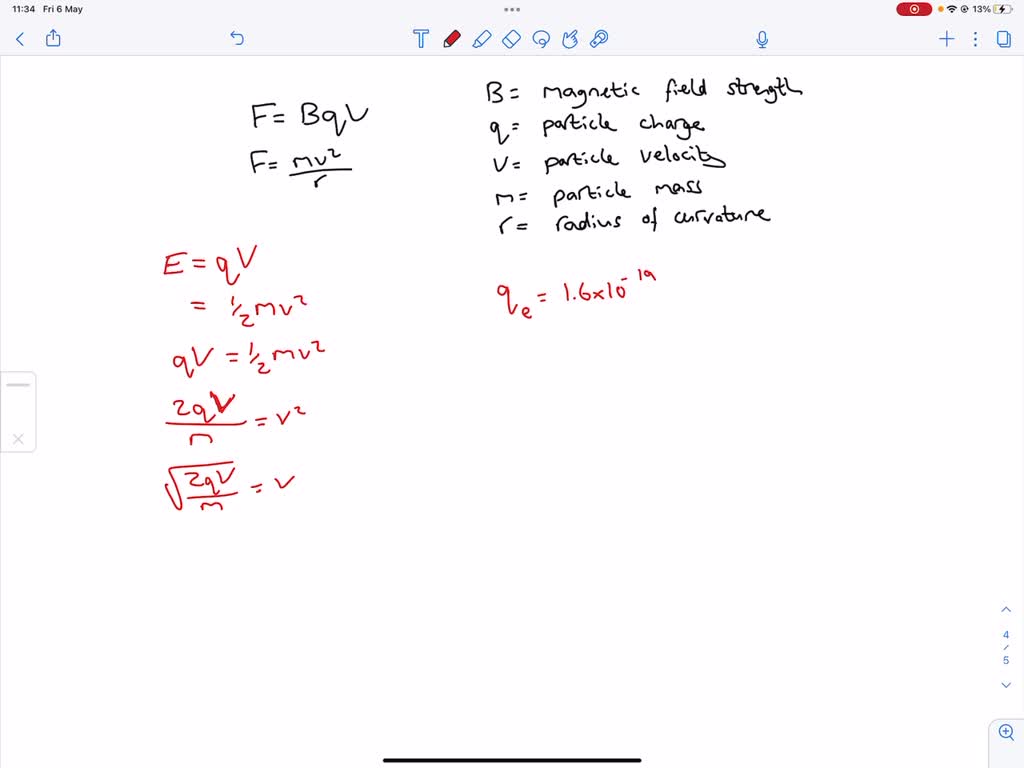 11:34 Fri 6 May
13%
F = BqV
F = mv²/r
B = magnetic field strength
q = particle charge
v = particle velocity
m = particle mass
r = radius of curvature
E = qV
= ½mv²
qV = ½mv²
2qV/m = v²
√(2qV/m) = v
qₑ = 1.6×10⁻¹⁹
4
5